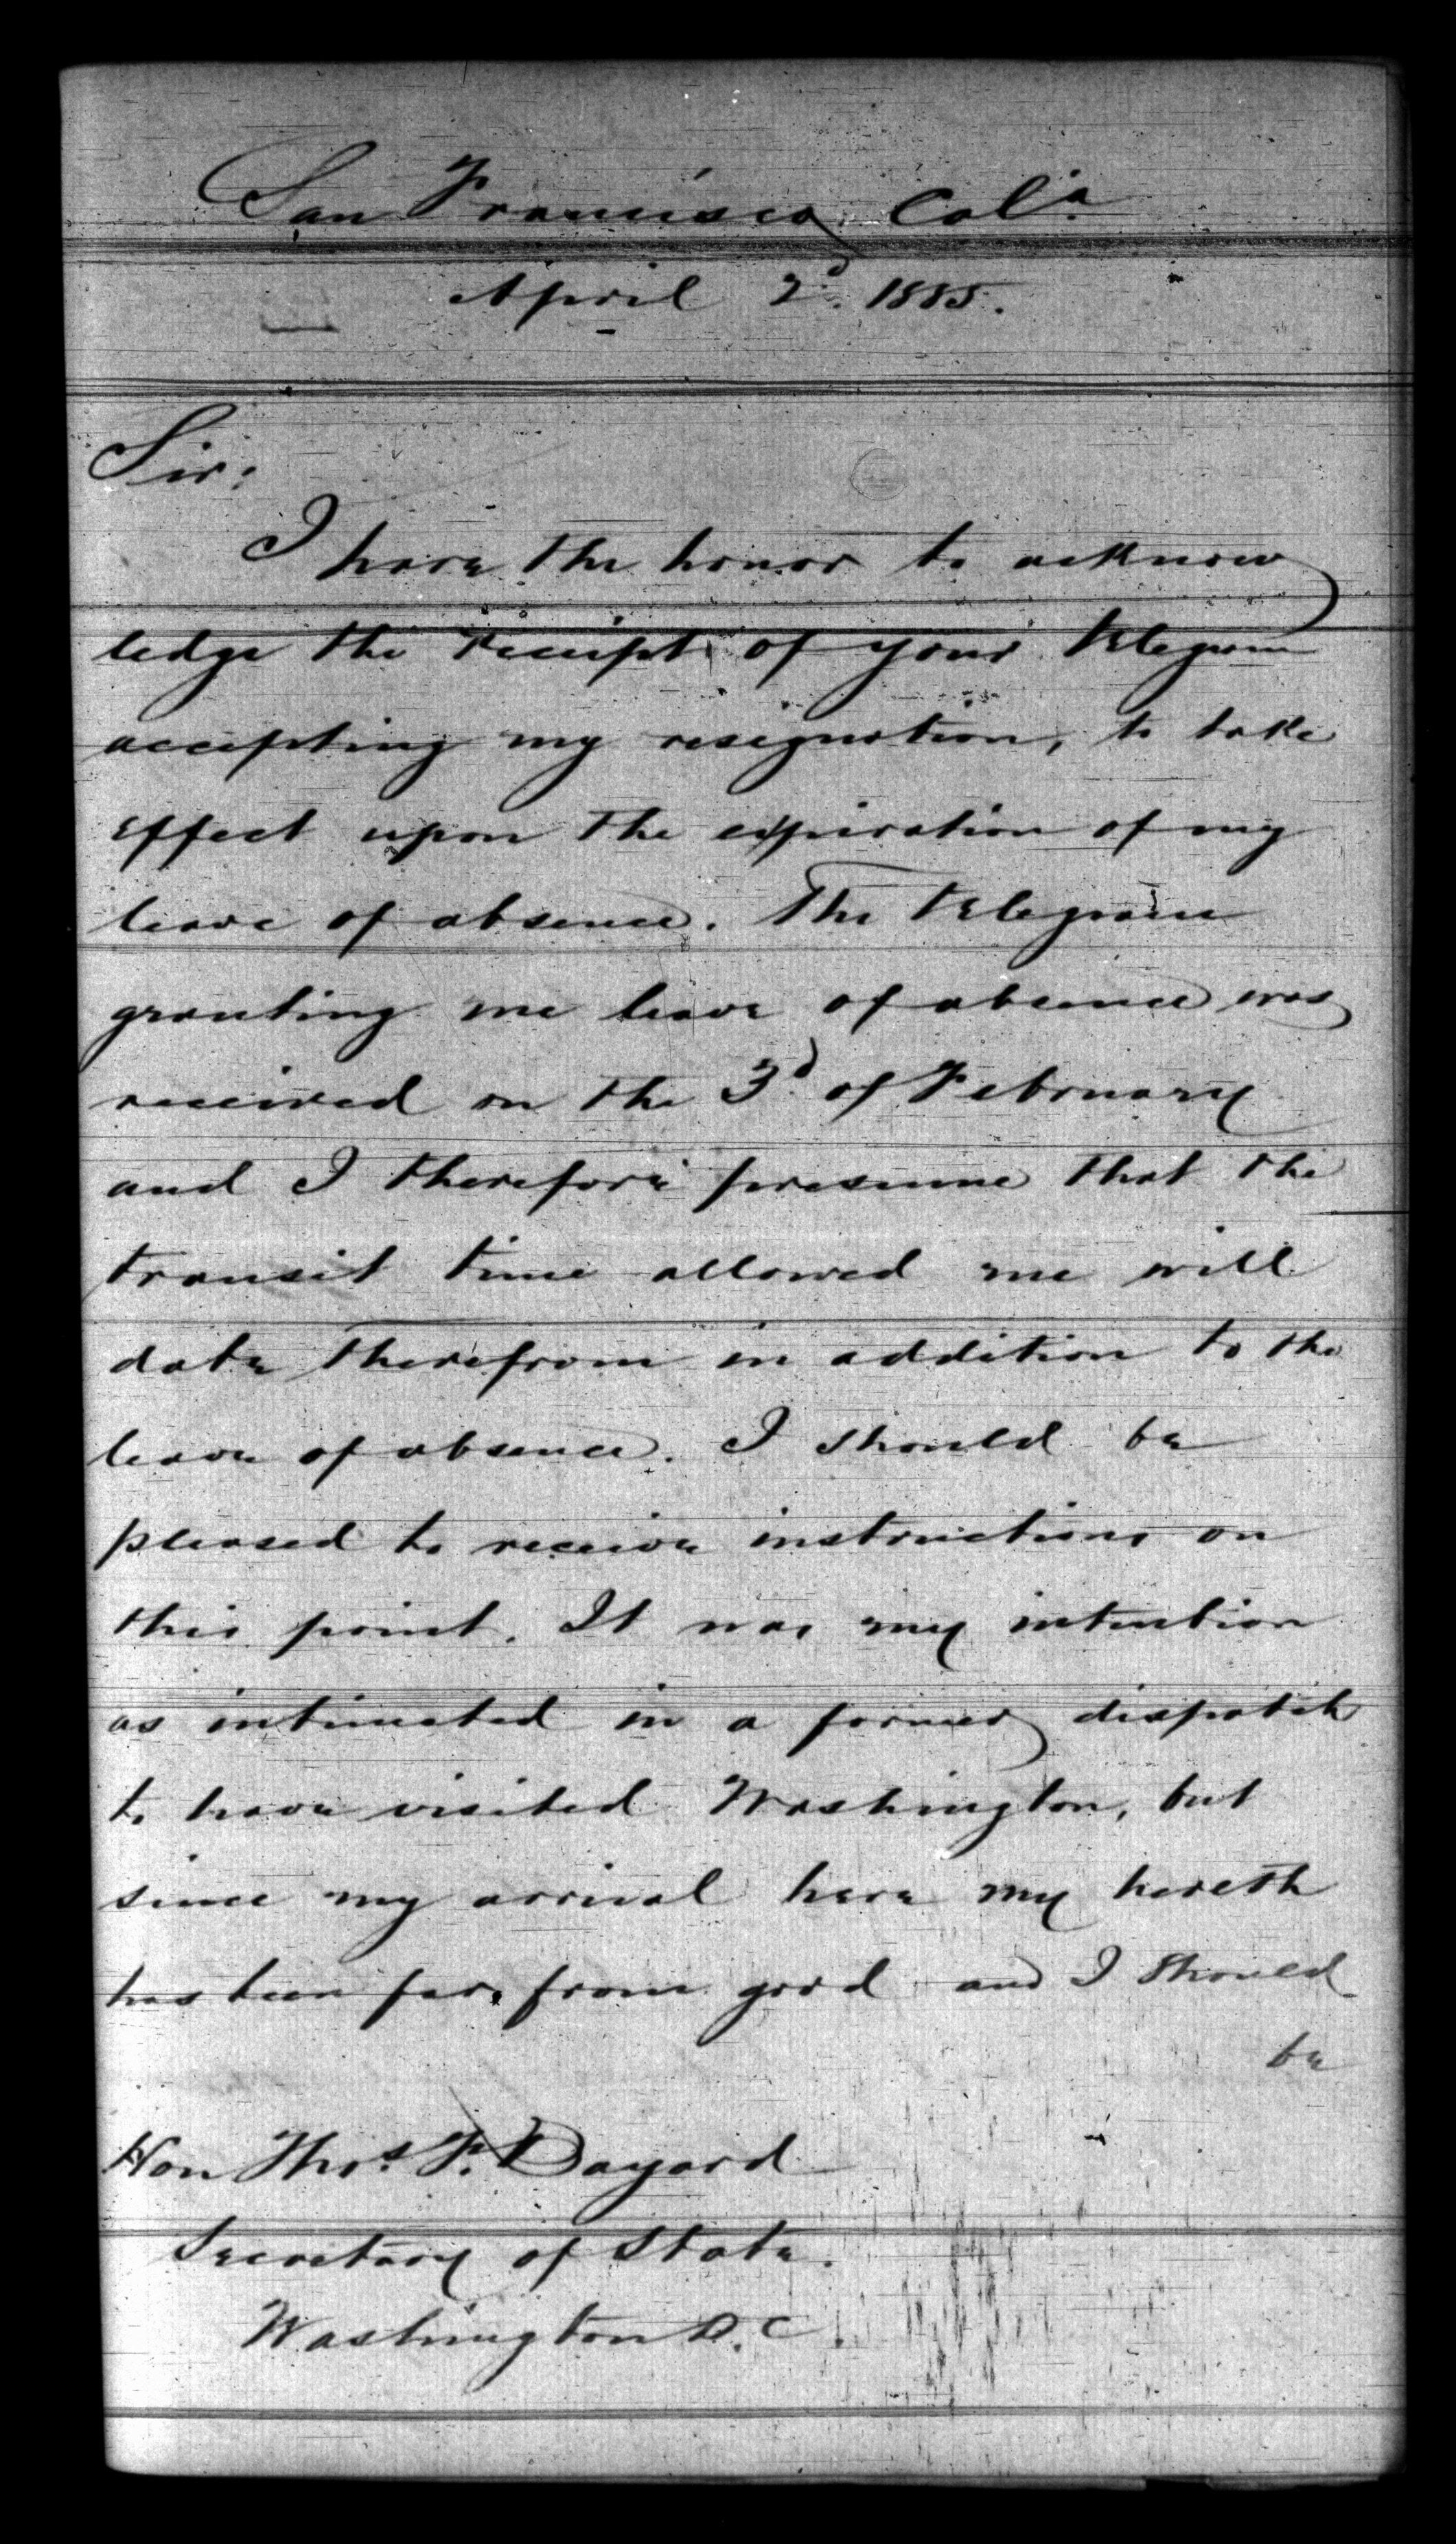 San Francisco, Cal'a.
April 2d. 1885.
Sir:
I have the honor to acknow
ledge the receipt of your telegram
accepting my resignation, to take
effect upon the expiration of my
leave of absence. The telegram
granting me leave of absence was
received on the 3d of February
and I therefore presume that the
transit time allowed me will
date therefrom in addition to the
leave of absence. I should be
pleased to receive instructions on
this point. It was my intention
as intimated in a former dispatch
to have visited Washington, but
since my arrival here my health
has been far from good and I should
be
Hon Thos. F. Bayard
Secretary of State.
Washington D.C.